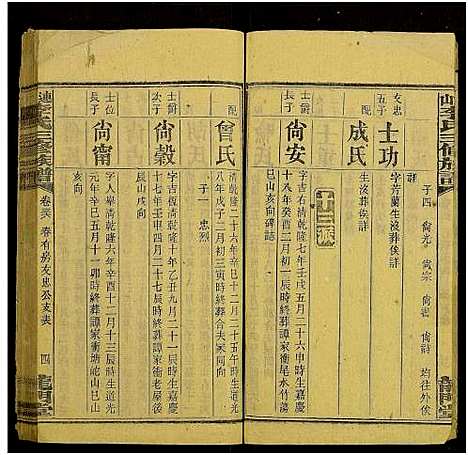 子四 尙光 尙宗 尙書 尙詩 均往外俟
友忠五子 士功
字芳蘭生沒葬俟詳
成氏
生沒葬俟詳
十三派
尙安
字清乾隆七年壬戌五月二十六申時生嘉慶
十八年癸酉三月初一寅時終葬譚家衝尾水竹蕩
巳山亥向碑誌
配 曾氏
清乾隆二十六年辛巳十二月二十五午時生道光
八年戊子二月初三寅時終葬合夫冢同向
子一 忠烈
士爵次子 尙穀
字吉右清乾隆十年乙丑九月二十一辰時生嘉慶
十七年壬申四月二十七辰時終葬譚家衝老屋後
辰山戌向
士位長子 尙甯
字人舉清乾隆六年辛酉十二月十三辰時生道光
元年辛巳五月十一卯時終葬譚家衝塘坨山巳山
亥向
李氏三修族譜
卷三六 春有房友忠公支表 四
龍門堂